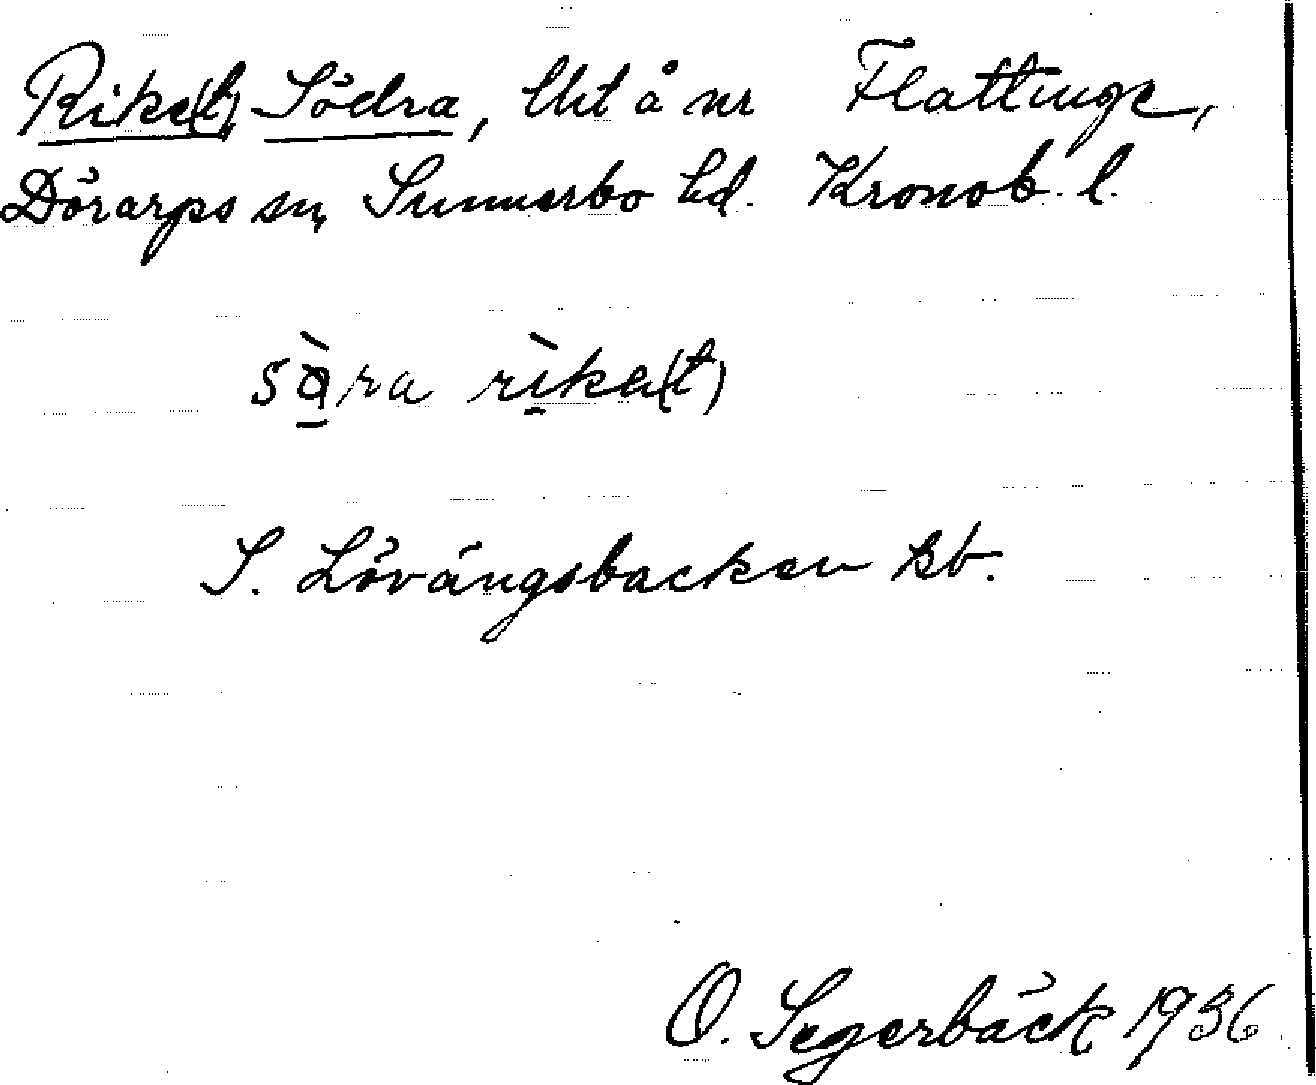 Rike(t), Södra, lht å nr Flattinge,
Dörarps sn, Sunnerbo hd. Kronob. l.
sö̀ra rìka(t)
S. Lövängsbacken kb.
O. Segerbäck 1936